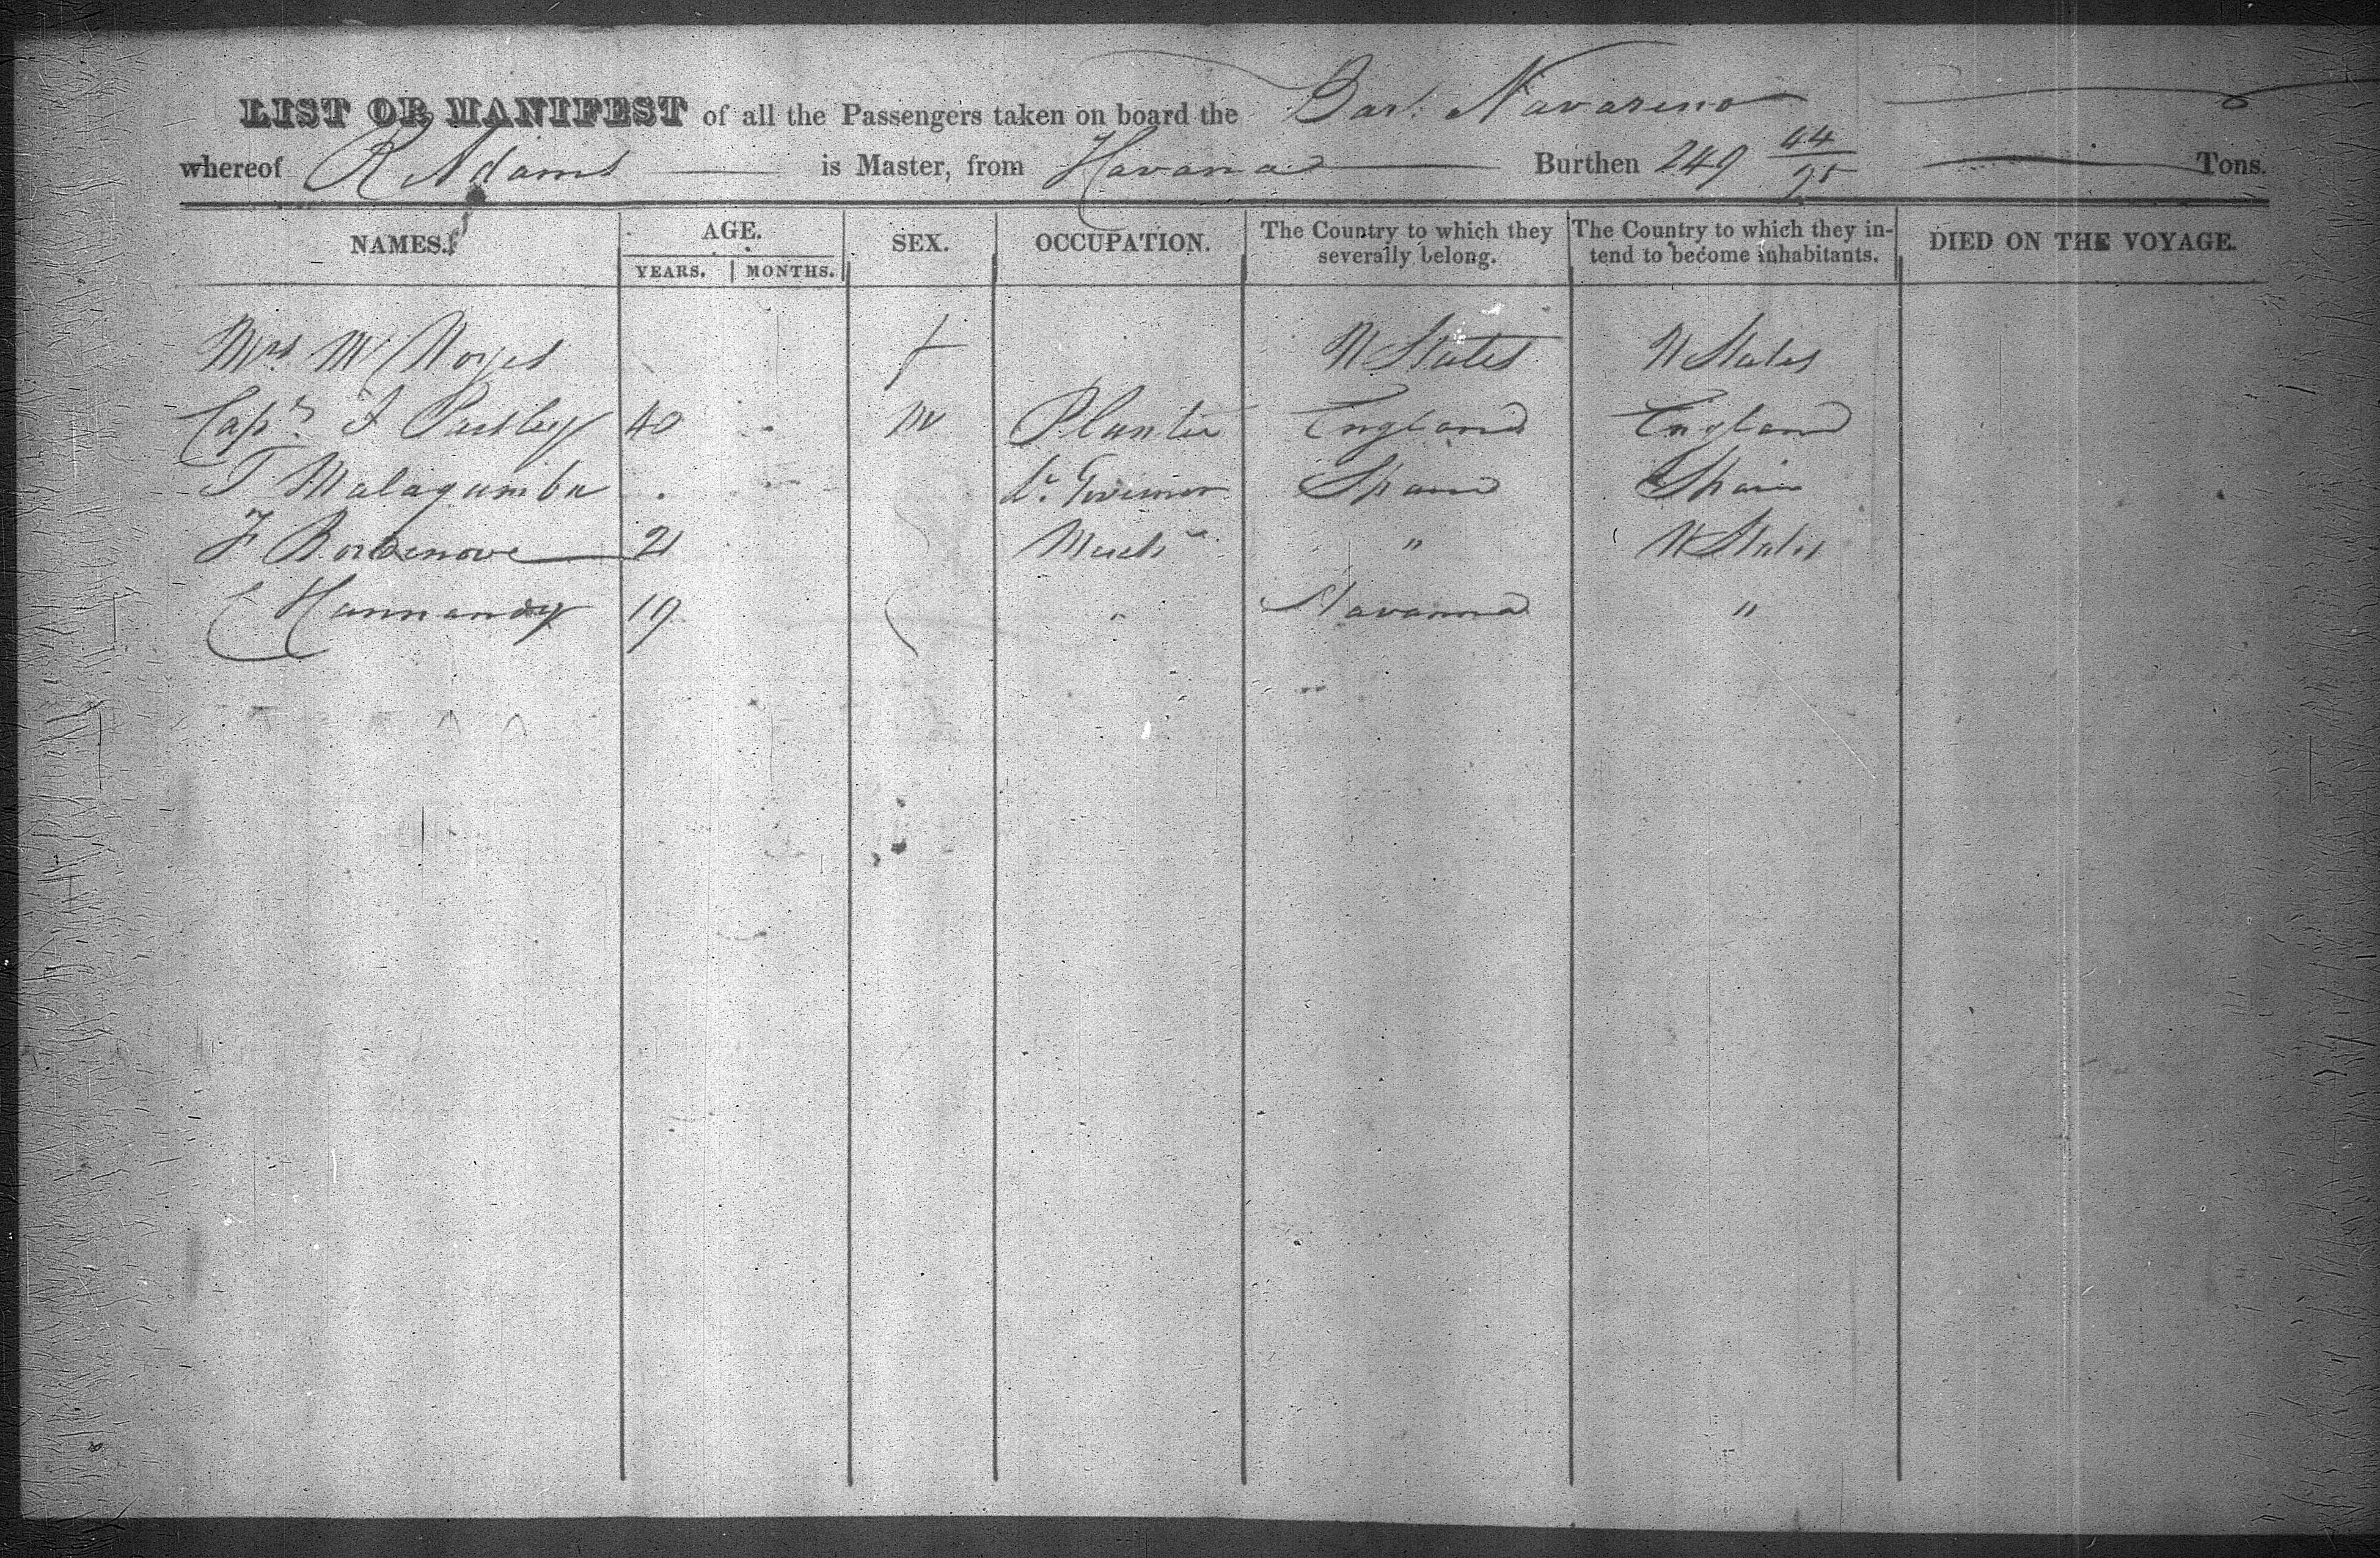 LIST OR MANIFEST of all the Passengers taken on board the Bark Navarino
whereof R Adams is Master, from Havana Burthen 249 44/95 Tons.
NAMES. AGE. SEX. OCCUPATION. The Country to which they severally belong. The Country to which they intend to become inhabitants. DIED ON THE VOYAGE.
YEARS. MONTHS.
Mrs M Noyes f U States U States
Capt. J Pastley 40 M Planter England England
T Malagamba Lt. Governor Spain Spain
F 21 Mercht " U States
C 19 " Havanna "